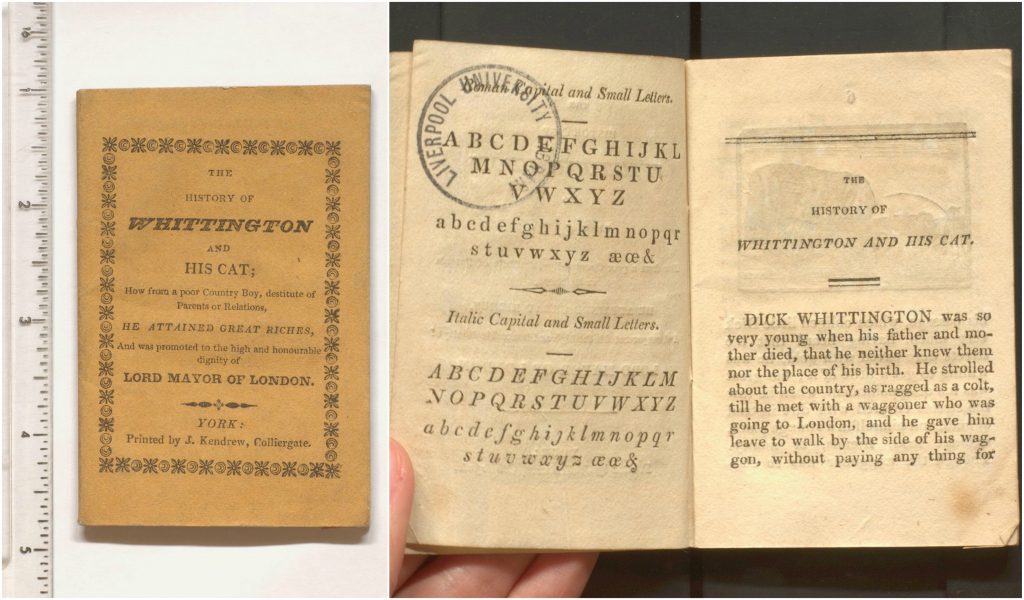 THE
HISTORY OF
WHITTINGTON
AND
HIS CAT;
How from a poor Country Boy, destitute of
Parents or Relations,
HE ATTAINED GREAT RICHES,
And was promoted to the high and honourable
dignity of
LORD MAYOR OF LONDON.
YORK:
Printed by J. Kendrew, Colliergate.
2
3
4
5
Roman Capital and Small Letters.
LIVERPOOL UNIVERSITY
A B C D E F G H I J K L
M N O P Q R S T U
V W X Y Z
a b c d e f g h i j k l m n o p q r
s t u v w x y z æ œ &
Italic Capital and Small Letters.
A B C D E F G H I J K L M
N O P Q R S T U V W X Y Z
a b c d e f g h i j k l m n o p q r
s t u v w x y z æ œ &
THE
HISTORY OF
WHITTINGTON AND HIS CAT.
DICK WHITTINGTON was so
very young when his father and mo-
ther died, that he neither knew them
nor the place of his birth. He strolled
about the country, as ragged as a colt,
till he met with a waggoner who was
going to London, and he gave him
leave to walk by the side of his wag-
gon, without paying any thing for